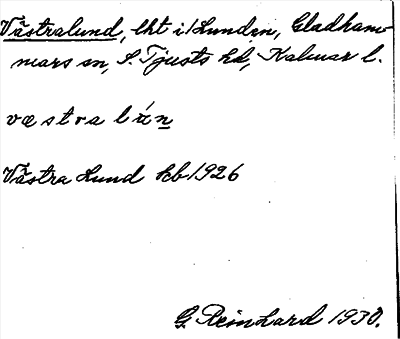 Västralund, lht i Lunden, Gladham-
mars sn, S. Tjusts hd, Kalmar l.
væstralän
Västra Lund kb 1926
G. Reinhard 1930.